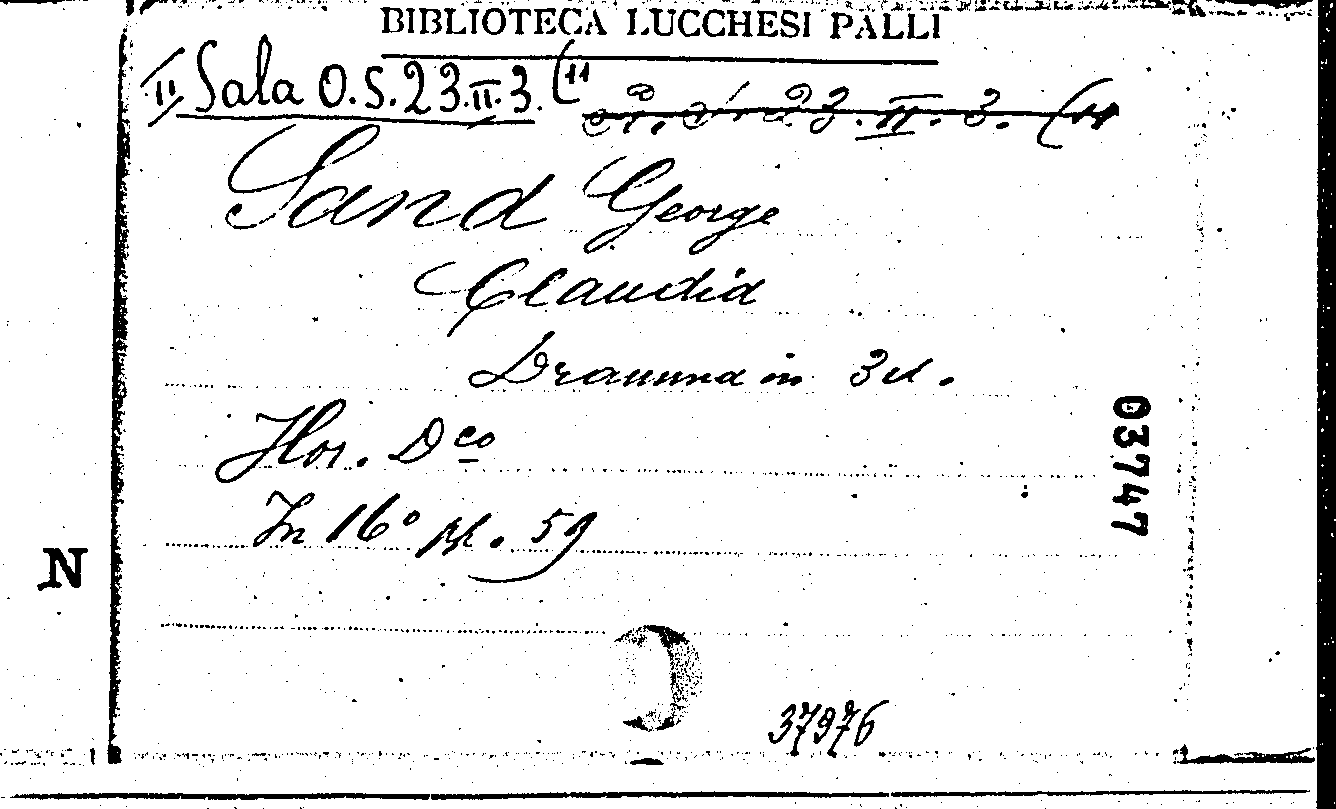 BIBLIOTECA LUCCHESI PALLI
II Sala O.S.23.II.3.(11
23.II.3.(11
Sand George
Claudia
Dramma in 3 d.
Flor. Dco
In 16° pp. 59
03747
N
37976